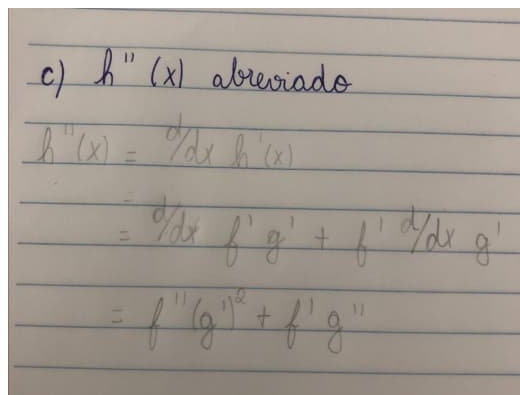 c) h''(x) abreviado
h''(x) = d/dx h'(x)
= d/dx f' g' + f' d/dx g'
= f''(g')² + f' g''